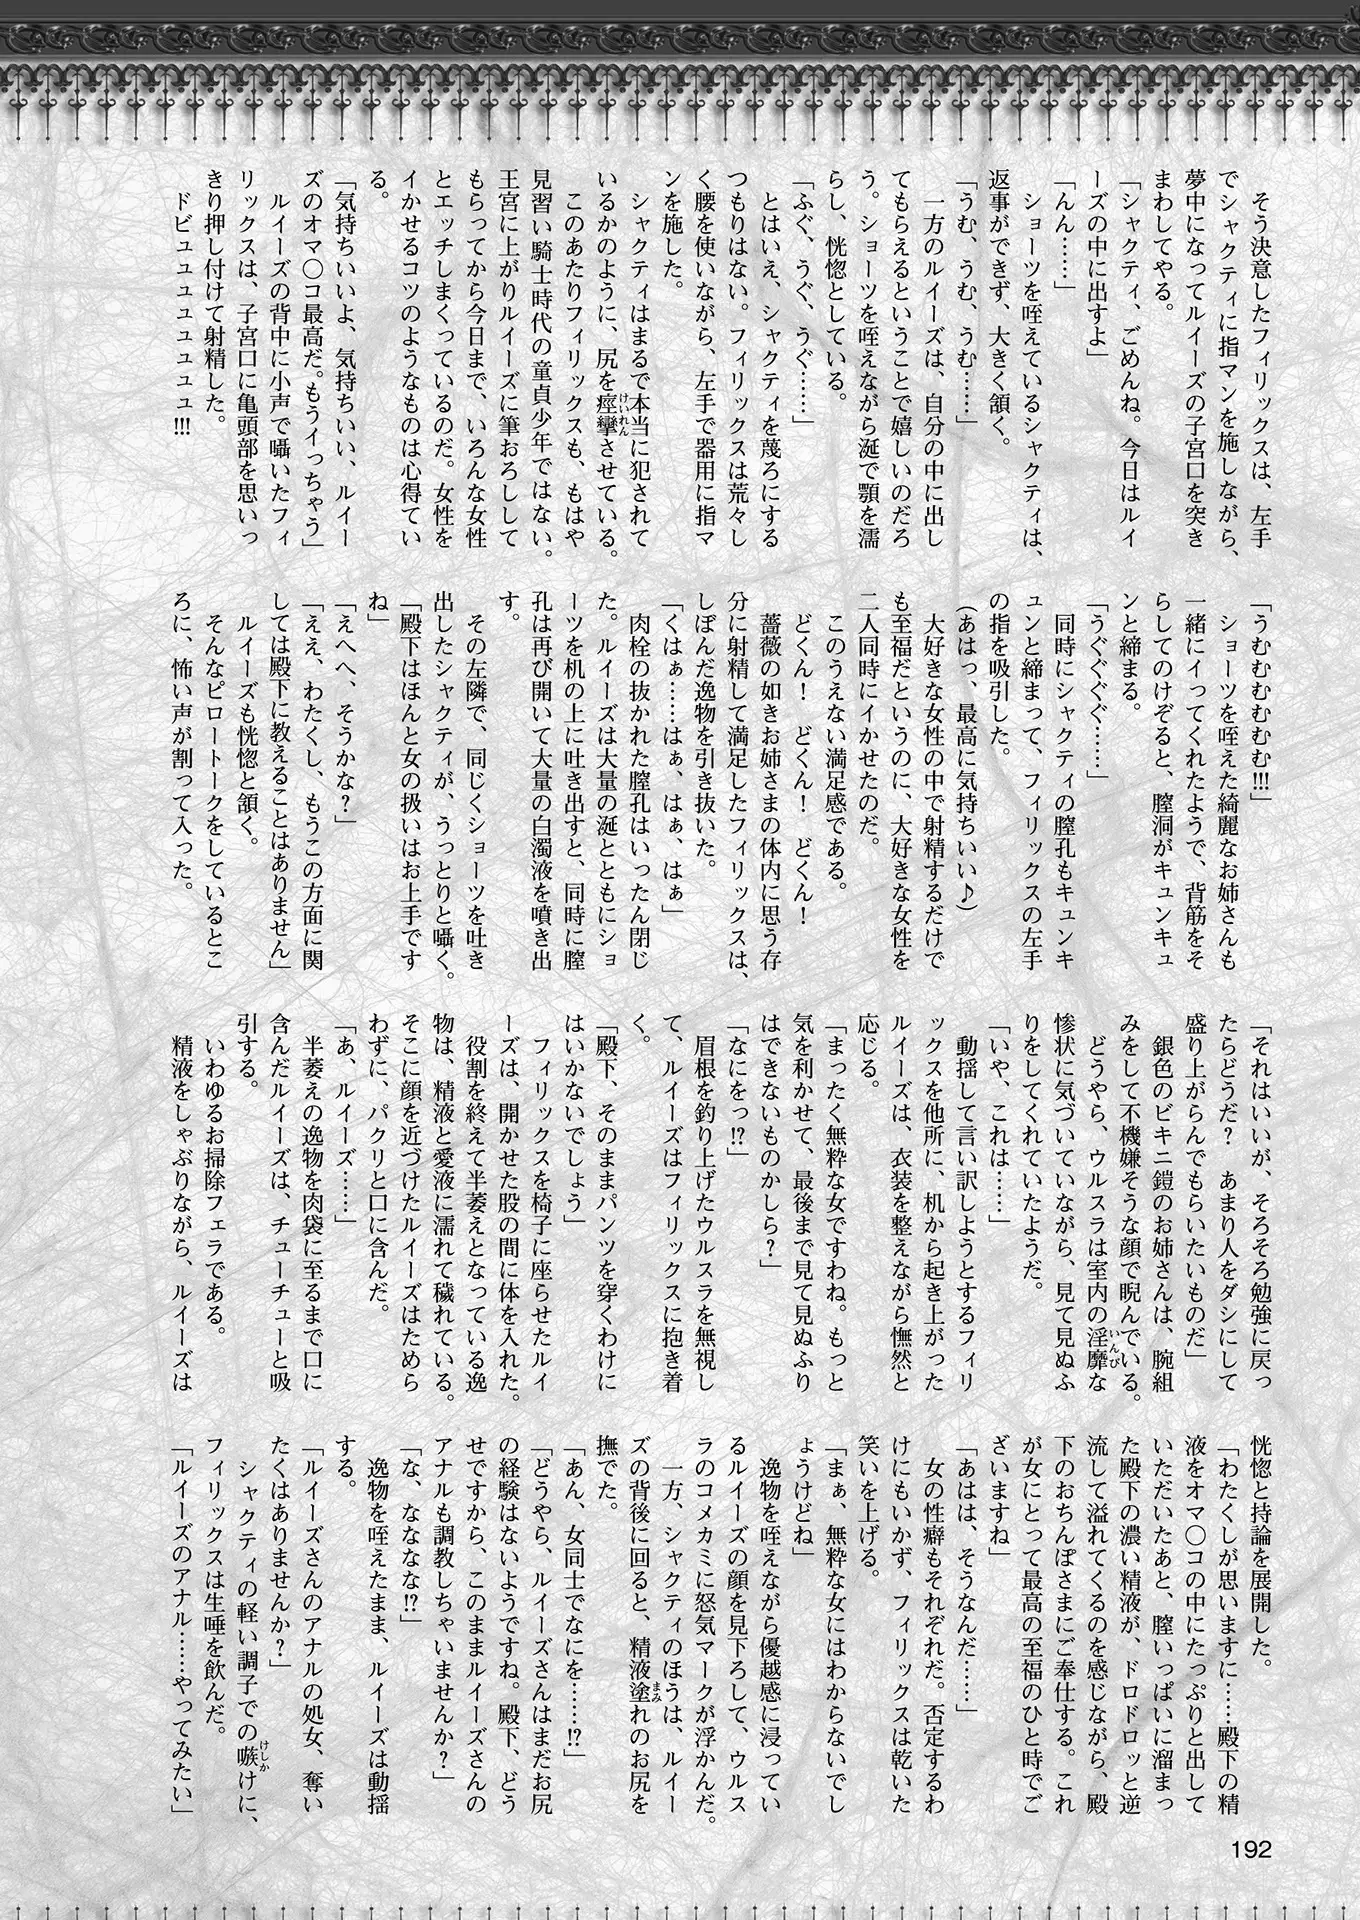 そう決意したフィリックスは、左手
でシャクティに指マンを施しながら、
夢中になってルイーズの子宮口を突き
まわしてやる。
「シャクティ、ごめんね。今日はルイ
ーズの中に出すよ」
「んん……」
ショーツを咥えているシャクティは、
返事ができず、大きく頷く。
「うむ、うむ、うむ……」
一方のルイーズは、自分の中に出し
てもらえるということで嬉しいのだろ
う。ショーツを咥えながら涎で顎を濡
らし、恍惚としている。
「ふぐ、うぐ、うぐ……」
とはいえ、シャクティを蔑ろにする
つもりはない。フィリックスは荒々し
く腰を使いながら、左手で器用に指マ
ンを施した。
シャクティはまるで本当に犯されて
いるかのように、尻を痙攣させている。
このあたりフィリックスも、もはや
見習い騎士時代の童貞少年ではない。
王宮に上がりルイーズに筆おろしして
もらってから今日まで、いろんな女性
とエッチしまくっているのだ。女性を
イかせるコツのようなものは心得てい
る。
「気持ちいいよ、気持ちいい、ルイー
ズのオマ〇コ最高だ。もうイっちゃう」
ルイーズの背中に小声で囁いたフィ
リックスは、子宮口に亀頭部を思いっ
きり押し付けて射精した。
ドビュュュュュュュュ!!!
「うむむむむむむ!!!」
ショーツを咥えた綺麗なお姉さんも
一緒にイってくれたようで、背筋をそ
らしてのけぞると、膣洞がキュンキュ
ンと締まる。
「うぐぐぐぐ……」
同時にシャクティの膣孔もキュンキ
ュンと締まって、フィリックスの左手
の指を吸引した。
(あはっ、最高に気持ちいい♪)
大好きな女性の中で射精するだけで
も至福だというのに、大好きな女性を
二人同時にイかせたのだ。
このうえない満足感である。
どくん！　どくん！　どくん！
薔薇の如きお姉さまの体内に思う存
分に射精して満足したフィリックスは、
しぼんだ逸物を引き抜いた。
「くはぁ……はぁ、はぁ、はぁ」
肉栓の抜かれた膣孔はいったん閉じ
た。ルイーズは大量の涎とともにショ
ーツを机の上に吐き出すと、同時に膣
孔は再び開いて大量の白濁液を噴き出
す。
その左隣で、同じくショーツを吐き
出したシャクティが、うっとりと囁く。
「殿下はほんと女の扱いはお上手です
ね」
「えへへ、そうかな？」
「ええ、わたくし、もうこの方面に関
しては殿下に教えることはありません」
ルイーズも恍惚と頷く。
そんなピロートークをしているとこ
ろに、怖い声が割って入った。
「それはいいが、そろそろ勉強に戻っ
たらどうだ？　あまり人をダシにして
盛り上がらんでもらいたいものだ」
銀色のビキニ鎧のお姉さんは、腕組
みをして不機嫌そうな顔で睨んでいる。
どうやら、ウルスラは室内の淫靡な
惨状に気づいていながら、見て見ぬふ
りをしてくれていたようだ。
「いや、これは……」
動揺して言い訳しようとするフィリ
ックスを他所に、机から起き上がった
ルイーズは、衣装を整えながら憮然と
応じる。
「まったく無粋な女ですわね。もっと
気を利かせて、最後まで見て見ぬふり
はできないものかしら？」
「なにをっ!?」
眉根を釣り上げたウルスラを無視し
て、ルイーズはフィリックスに抱き着
く。
「殿下、そのままパンツを穿くわけに
はいかないでしょう」
フィリックスを椅子に座らせたルイ
ーズは、開かせた股の間に体を入れた。
役割を終えて半萎えとなっている逸
物は、精液と愛液に濡れて穢れている。
そこに顔を近づけたルイーズはためら
わずに、パクリと口に含んだ。
「あ、ルイーズ……」
半萎えの逸物を肉袋に至るまで口に
含んだルイーズは、チューチューと吸
引する。
いわゆるお掃除フェラである。
精液をしゃぶりながら、ルイーズは
恍惚と持論を展開した。
「わたくしが思いますに……殿下の精
液をオマ〇コの中にたっぷりと出して
いただいたあと、膣いっぱいに溜まっ
た殿下の濃い精液が、ドロドロッと逆
流して溢れてくるのを感じながら、殿
下のおちんぽさまにご奉仕する。これ
が女にとって最高の至福のひと時でご
ざいますね」
「あはは、そうなんだ……」
女の性癖もそれぞれだ。否定するわ
けにもいかず、フィリックスは乾いた
笑いを上げる。
「まぁ、無粋な女にはわからないでし
ょうけどね」
逸物を咥えながら優越感に浸ってい
るルイーズの顔を見下ろして、ウルス
ラのコメカミに怒気マークが浮かんだ。
一方、シャクティのほうは、ルイー
ズの背後に回ると、精液塗れのお尻を
撫でた。
「あん、女同士でなにを……!?」
「どうやら、ルイーズさんはまだお尻
の経験はないようですね。殿下、どう
せですから、このままルイーズさんの
アナルも調教しちゃいませんか？」
「な、なななな!?」
逸物を咥えたまま、ルイーズは動揺
する。
「ルイーズさんのアナルの処女、奪い
たくはありませんか？」
シャクティの軽い調子での嗾けに、
フィリックスは生唾を飲んだ。
「ルイーズのアナル……やってみたい」
192